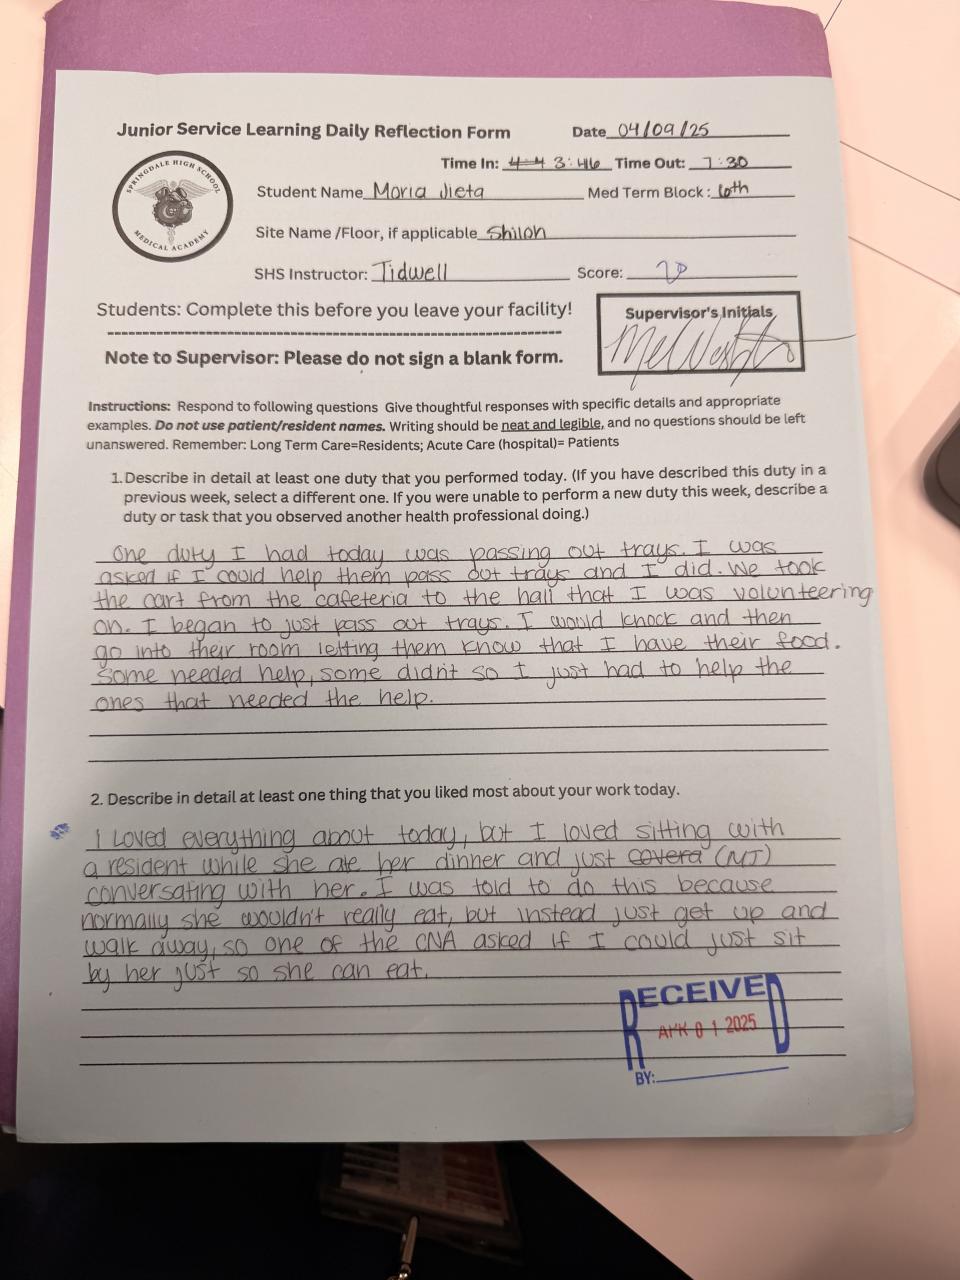 Junior Service Learning Daily Reflection Form
Date 04/09/25
Time In: 4:4 3:46 Time Out: 7:30
SPRINGDALE HIGH SCHOOL
MEDICAL ACADEMY
Student Name Moria Jieta Med Term Block: 6th
Site Name /Floor, if applicable Shiloh
SHS Instructor: Tidwell Score: 20
Students: Complete this before you leave your facility!
Supervisor's Initials
Note to Supervisor: Please do not sign a blank form.
Instructions: Respond to following questions Give thoughtful responses with specific details and appropriate
examples. Do not use patient/resident names. Writing should be neat and legible, and no questions should be left
unanswered. Remember: Long Term Care=Residents; Acute Care (hospital)= Patients
1. Describe in detail at least one duty that you performed today. (If you have described this duty in a
previous week, select a different one. If you were unable to perform a new duty this week, describe a
duty or task that you observed another health professional doing.)
One duty I had today was passing out trays. I was
asked if I could help them pass out trays and I did. We took
the cart from the cafeteria to the hall that I was volunteering
on. I began to just pass out trays. I would knock and then
go into their room letting them know that I have their food.
Some needed help, some didn't so I just had to help the
ones that needed the help.
2. Describe in detail at least one thing that you liked most about your work today.
I Loved everything about today, but I loved sitting with
a resident while she ate her dinner and just (MJ)
conversating with her. I was told to do this because
normally she wouldn't really eat, but instead just get up and
walk away, so one of the CNA asked if I could just sit
by her just so she can eat.
RECEIVED
APR 01 2025
BY: